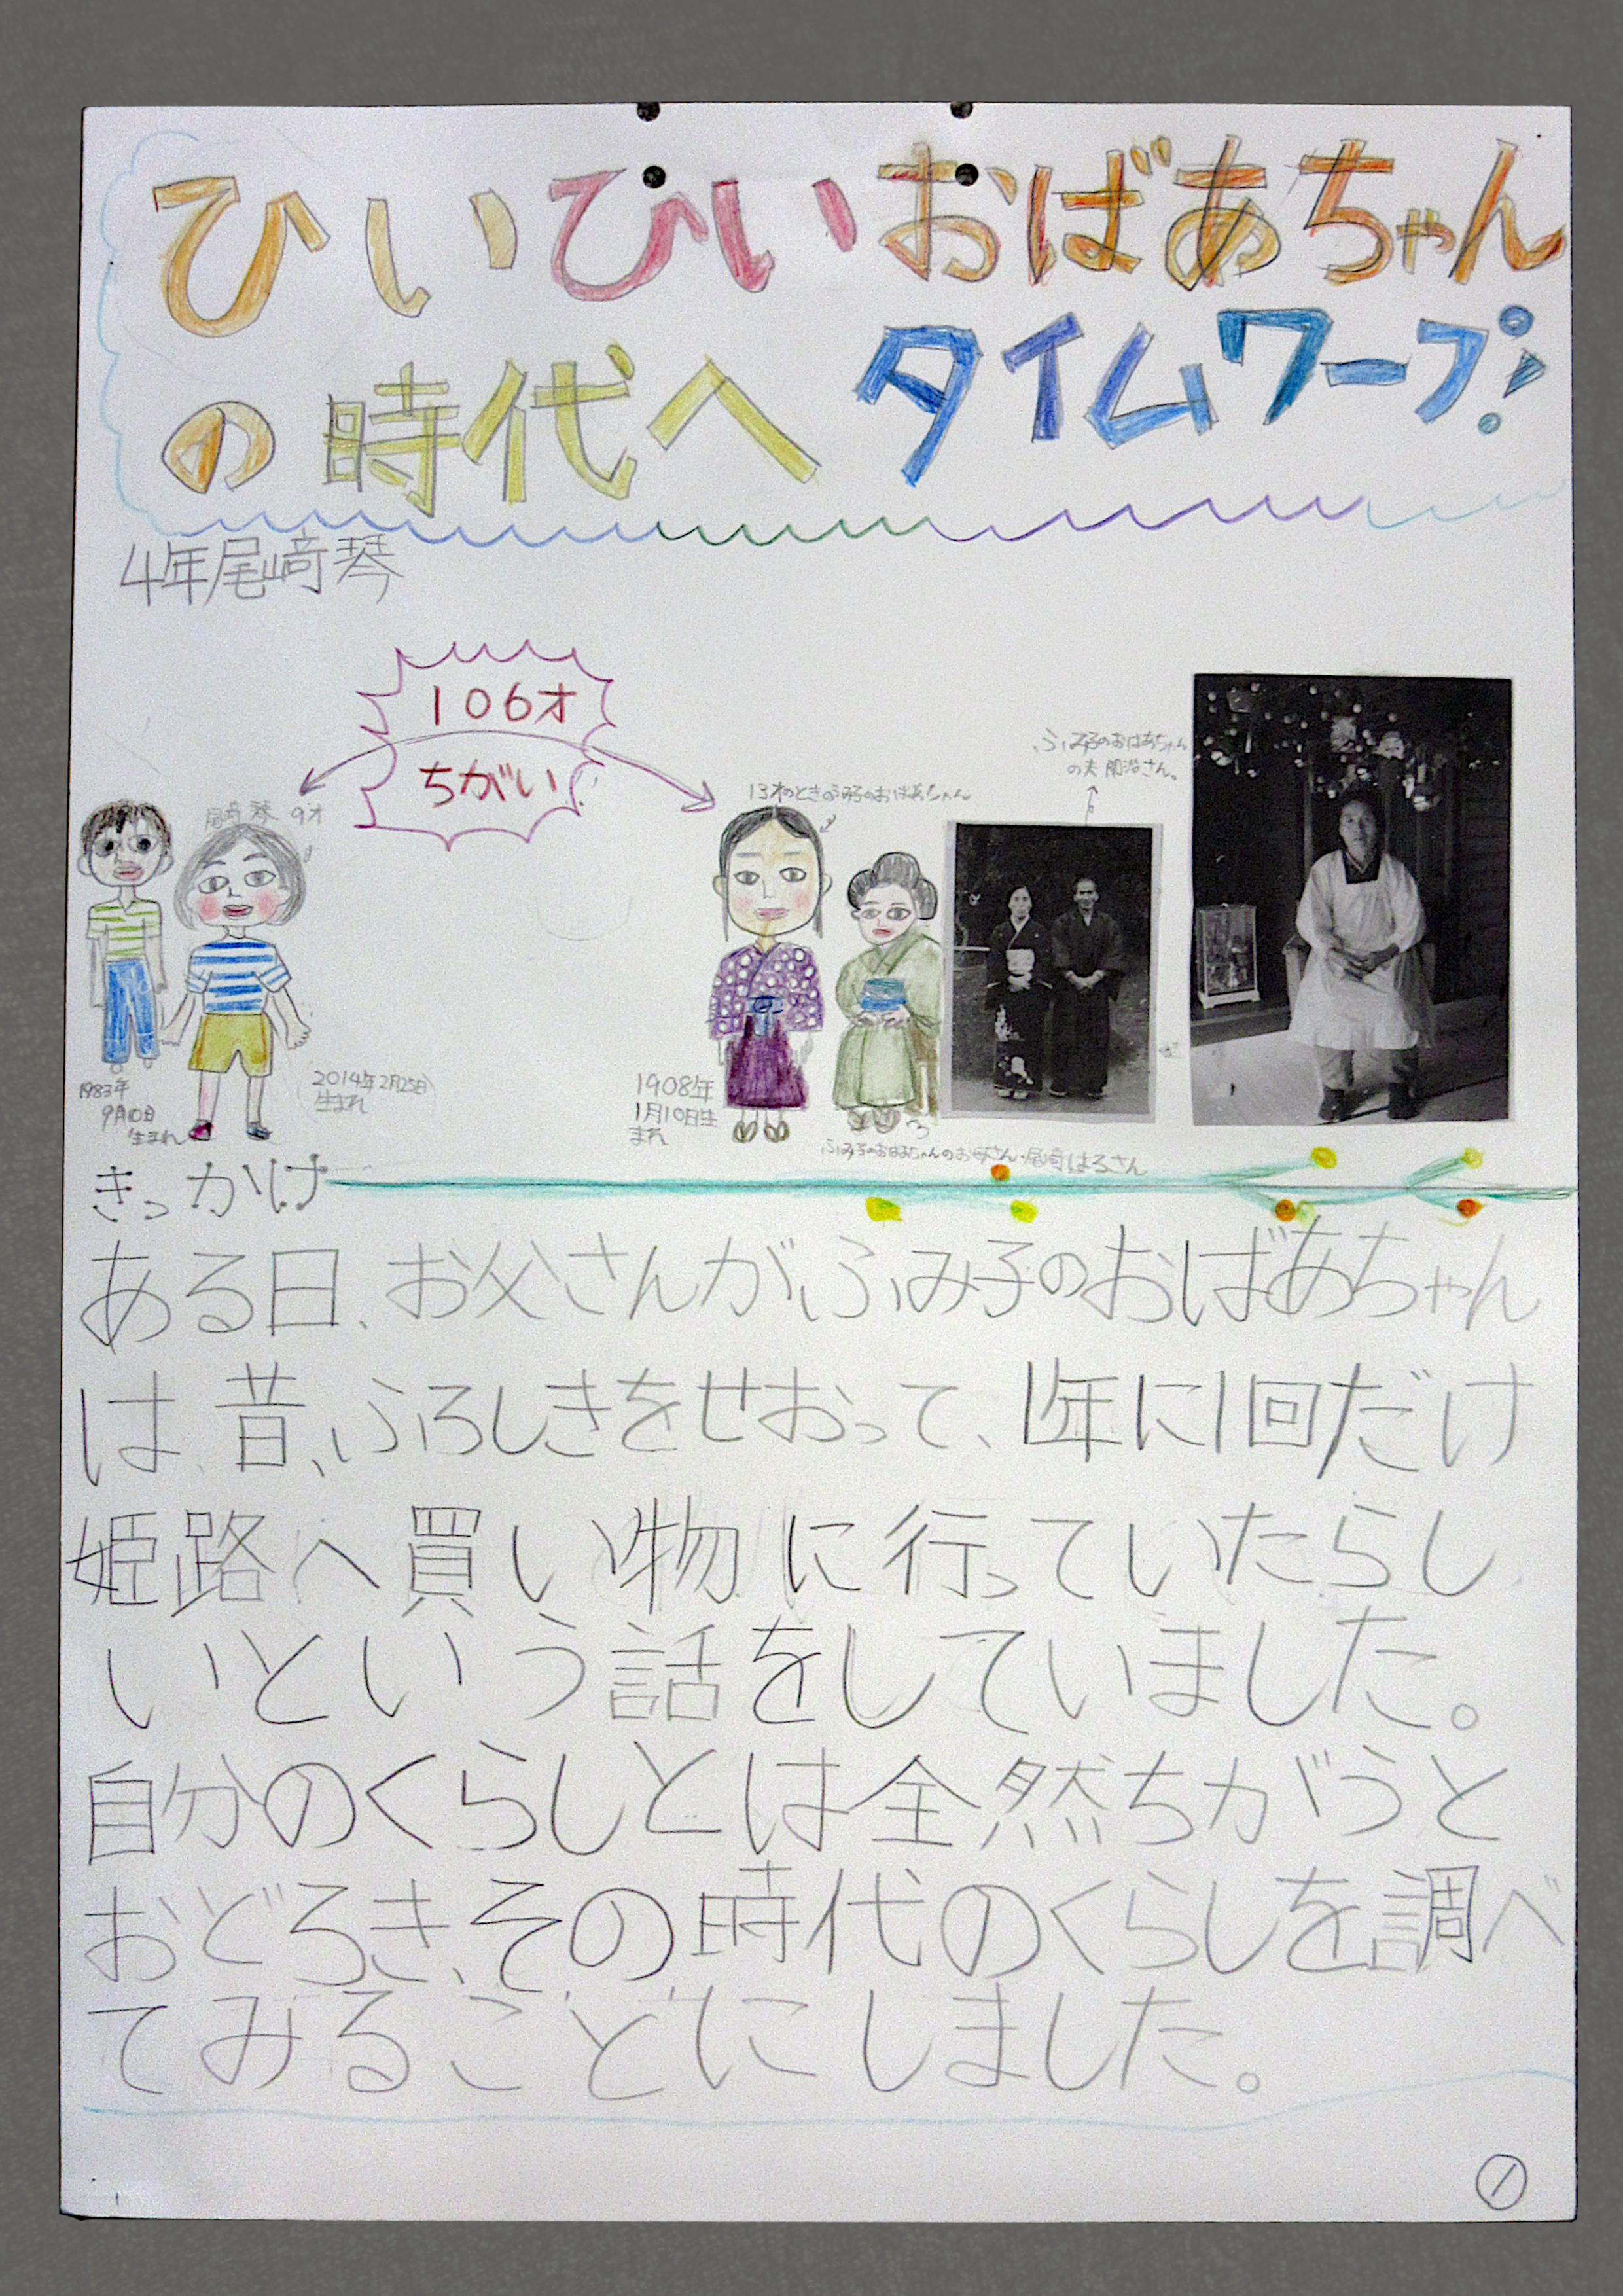 ひいひいおばあちゃん
の時代へ タイムワープ!
4年尾﨑琴
106才
ちがい
尾﨑琴 9才
13才のときのふみ子のおばあちゃん
ふみ子のおばあちゃん
の夫 さん。
1983年
9月10日
生まれ
2014年2月25日
生まれ
1908年
1月10日生
まれ
ふみ子のおばあちゃんのお母さん・尾﨑はるさん
きっかけ
ある日、お父さんがふみ子のおばあちゃん
は、昔、ふろしきをせおって、1年に1回だけ
姫路へ買い物に行っていたらし
いという話をしていました。
自分のくらしとは全然ちがうと
おどろき、その時代のくらしを調べ
てみることにしました。
1